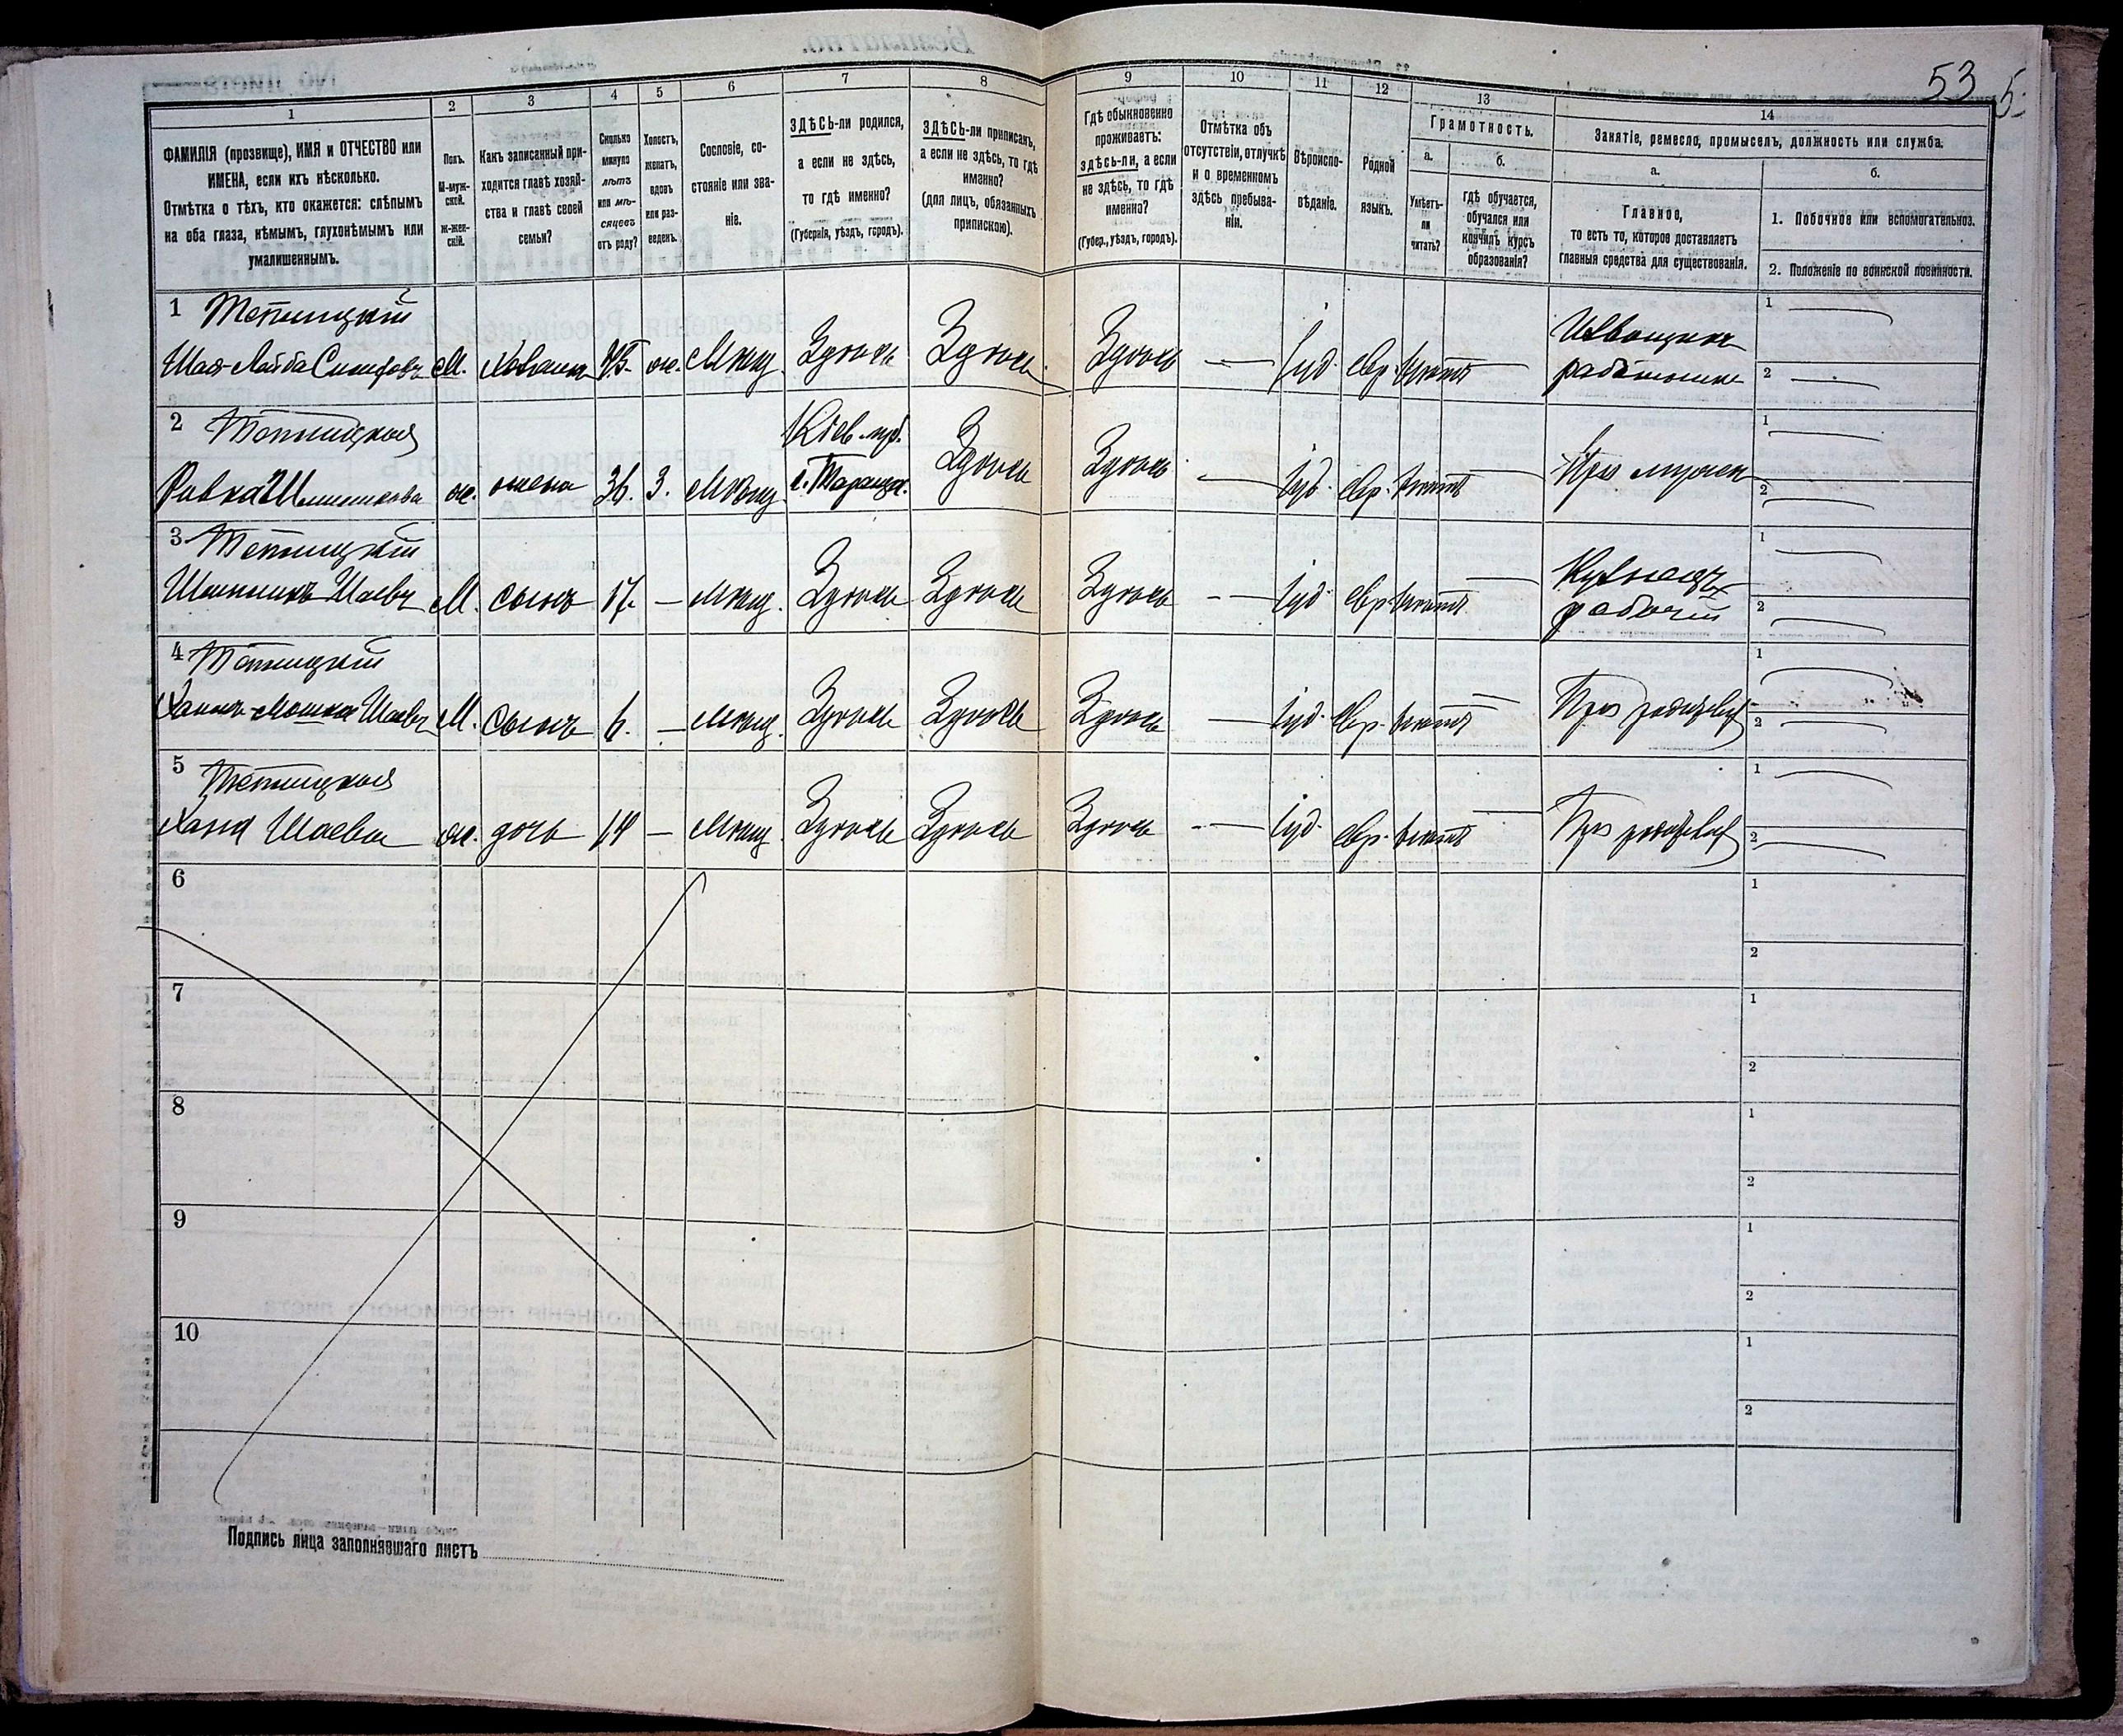 53
1
2
3
4
5
6
7
8
9
10
11
12
13
14
ФАМИЛІЯ (прозвище), ИМЯ и ОТЧЕСТВО или
ИМЕНА, если ихъ нѣсколько.
Отмѣтка о тѣхъ, кто окажется: слѣпымъ
на оба глаза, нѣмымъ, глухонѣмымъ или
умалишеннымъ.
Полъ.
М-муж-
ской.
ж-жен-
скій.
Какъ записанный при-
ходится главѣ хозяй-
ства и главѣ своей
семьи?
Сколько
минуло
лѣтъ
или мѣ-
сяцевъ
отъ роду?
Холостъ,
женатъ,
вдовъ
или раз-
веденъ.
Сословіе, со-
стояніе или зва-
ніе.
ЗДѢСЬ-ли родился,
а если не здѣсь,
то гдѣ именно?
(Губернія, уѣздъ, городъ).
ЗДѢСЬ-ли приписанъ,
а если не здѣсь, то гдѣ
именно?
(для лицъ, обязанныхъ
припискою).
Гдѣ обыкновенно
проживаетъ:
здѣсь-ли, а если
не здѣсь, то гдѣ
именно?
(Губер., уѣздъ, городъ).
Отмѣтка объ
отсутствіи, отлучкѣ
и о временномъ
здѣсь пребыва-
ніи.
Вѣроиспо-
вѣданіе.
Родной
языкъ.
Грамотность.
а.
Умѣетъ-
ли
читать?
б.
гдѣ обучается,
обучался или
кончилъ курсъ
образованія?
Занятіе, ремесло, промыселъ, должность или служба.
а.
Главное,
то есть то, которое доставляетъ
главныя средства для существованія.
б.
1. Побочное или вспомогательное.
2. Положеніе по воинской повинности.
1
Шая-Лейба М. хозяинъ 45 ж. Мѣщ. Здѣсь Здѣсь Здѣсь — Іуд. евр. нѣтъ — Извощикъ
1
2
2
Кіев. губ.
жена 36. з. Мѣщ. г. Тараща. Здѣсь Здѣсь — Іуд. евр. нѣтъ — При мужѣ
1
2
3
Шаевъ М. сынъ 17. — Мѣщ. Здѣсь Здѣсь Здѣсь — Іуд. евр. нѣтъ — Кузнецъ
рабочій
1
2
4
Хаимъ-Мошко Шаевъ М. сынъ 6. — Мѣщ. Здѣсь Здѣсь Здѣсь — Іуд. евр. нѣтъ — При родителяхъ
1
2
5
Хана Шаева ж. дочь 14 — Мѣщ. Здѣсь Здѣсь Здѣсь — Іуд. евр. нѣтъ — При родителяхъ
1
2
6
1
2
7
1
2
8
1
2
9
1
2
10
1
2
Подпись лица заполнявшаго листъ